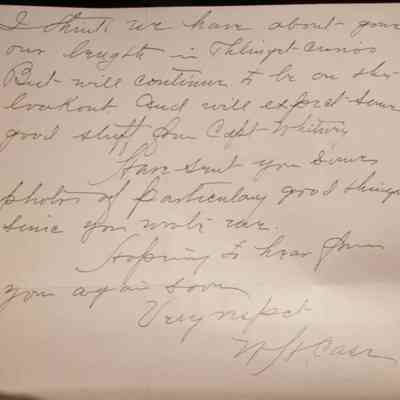 I think we have about gone
our length in Thlinget curios
But will continue to be on the
lookout and will expect some
good stuff from Capt Whitney
Have sent you some
photos of particulary good things
since you wrote me.
Hopeing to hear from
you again soon
Very respct
W H Case